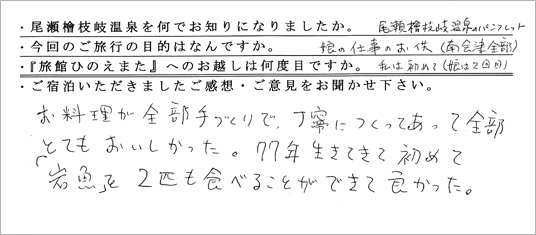 ・尾瀬檜枝岐温泉を何でお知りになりましたか。 尾瀬檜枝岐温泉のパンフレット
・今回のご旅行の目的はなんですか。 娘の仕事のお供（南会津全部）
・『旅館ひのえまた』へのお越しは何度目ですか。 私は初めて（娘は2回目）
・ご宿泊いただきましたご感想・ご意見をお聞かせ下さい。
お料理が全部手づくりで、丁寧につくってあって全部
とてもおいしかった。77年生きてきて初めて
「岩魚」を2匹も食べることができて良かった。